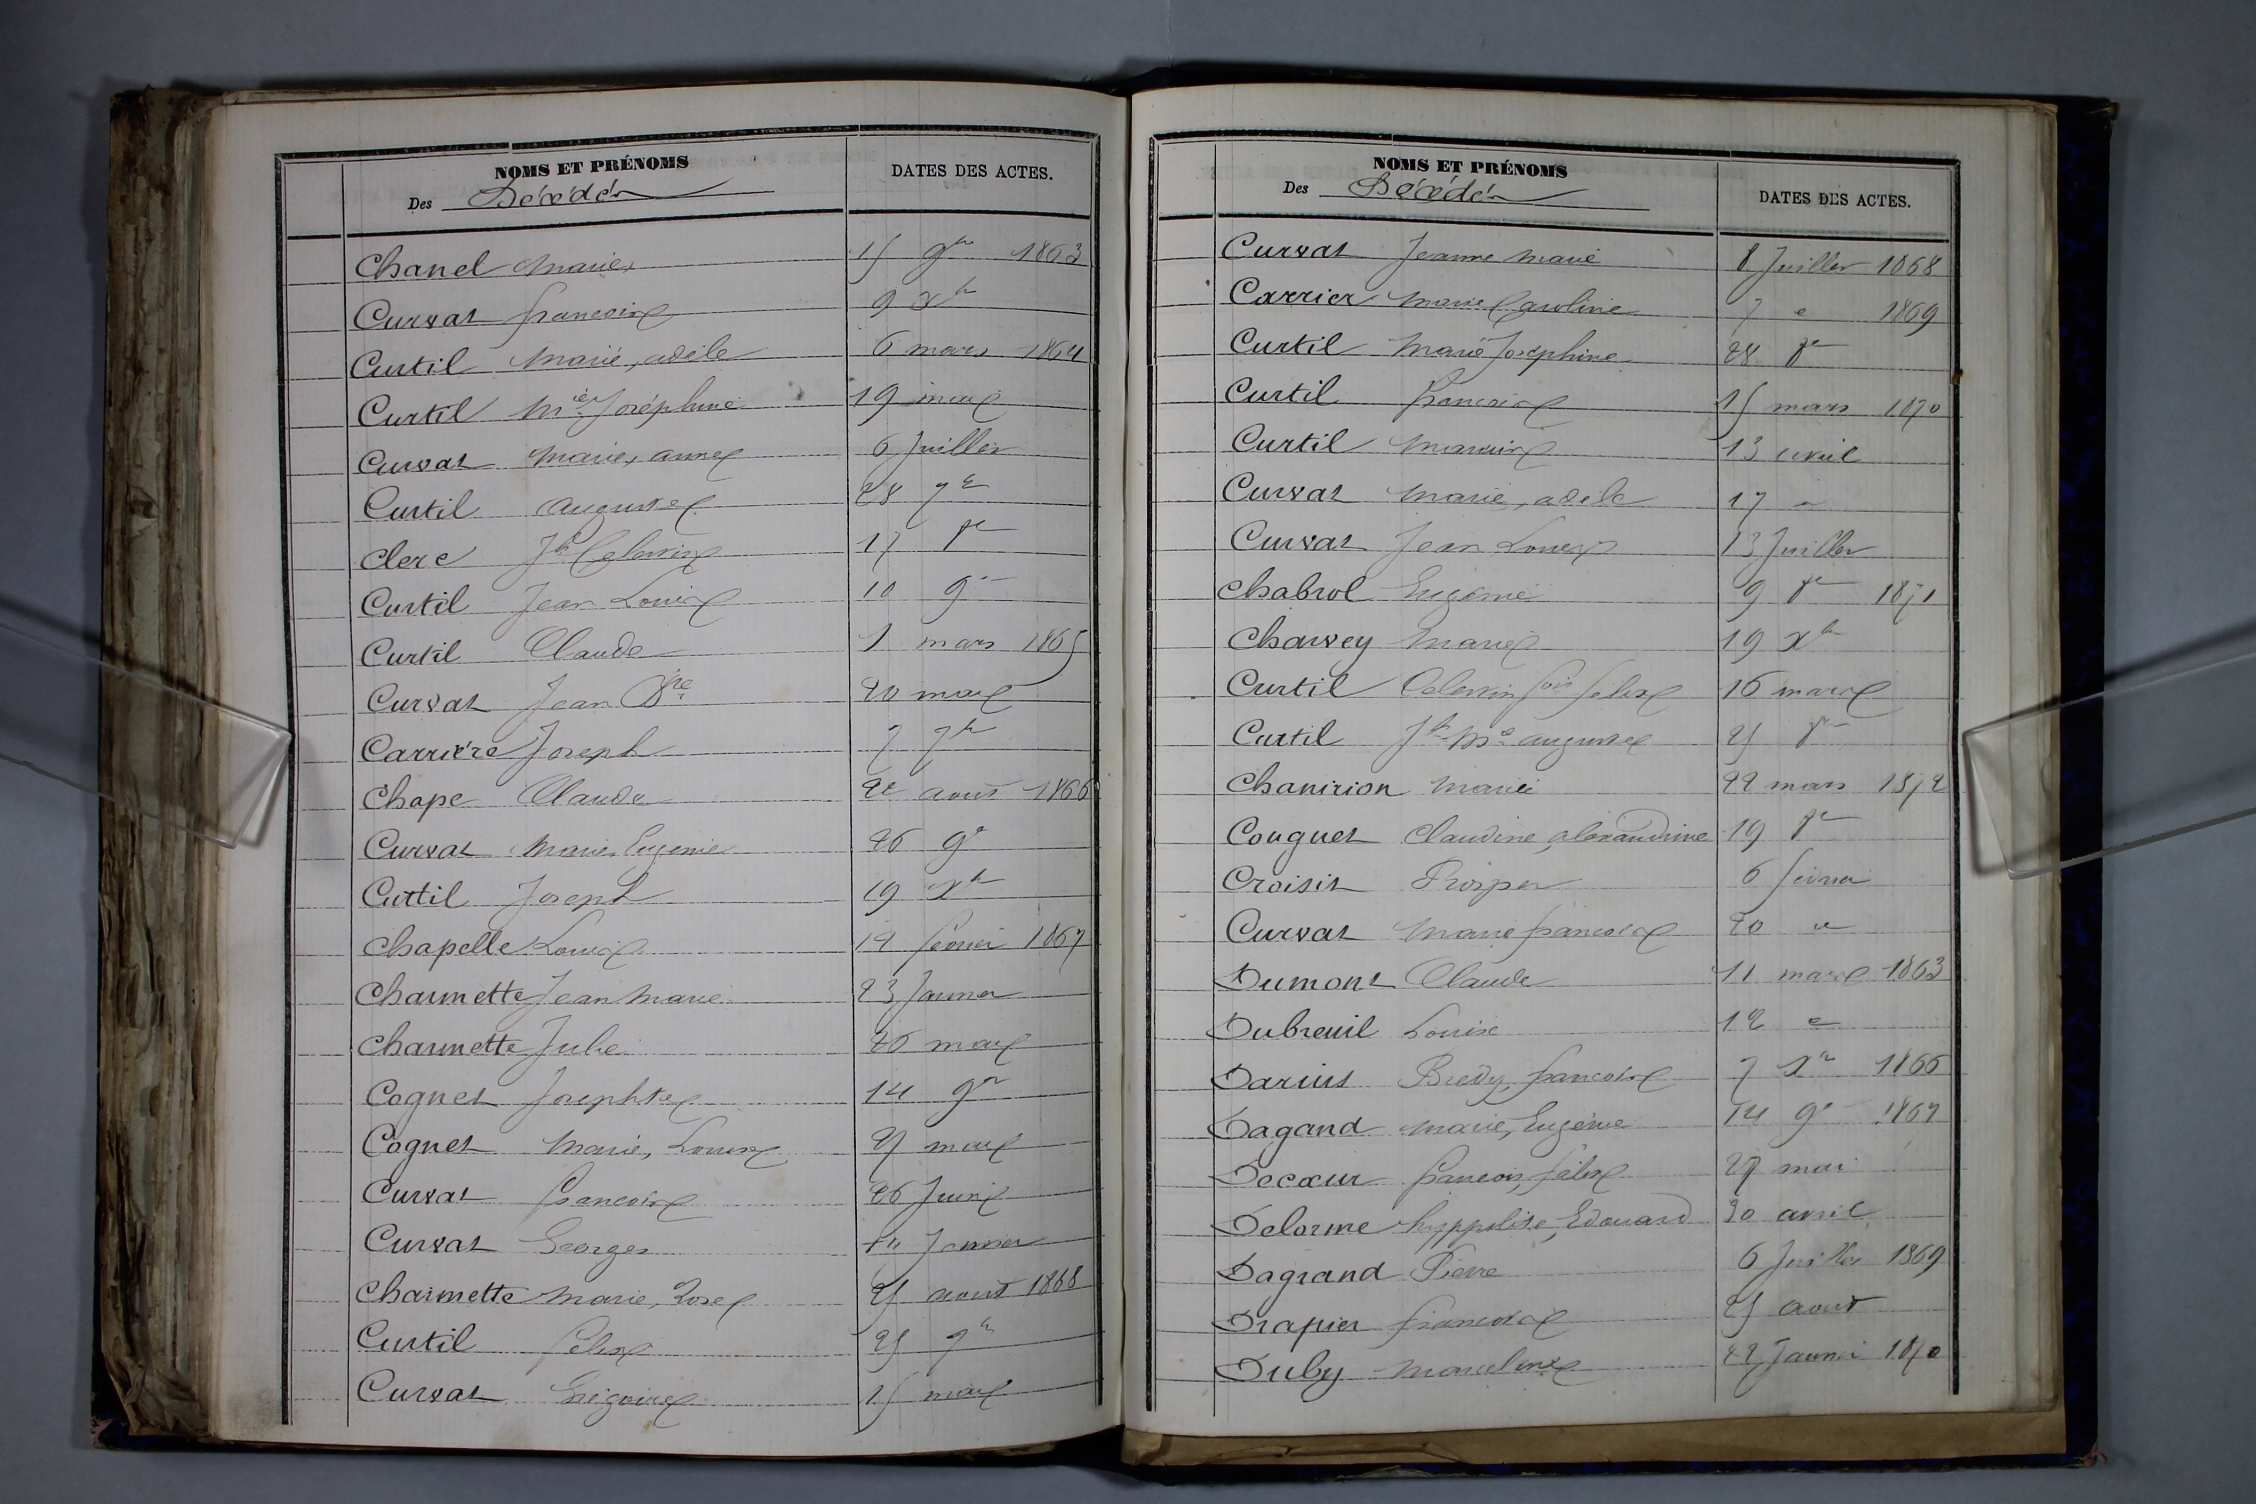 NOMS ET PRÉNOMS
Des Décédés
DATES DES ACTES.
Chanel Marie 15 9bre 1863
Curvat françoise 9 Xbre
Curtil Marie, adèle 6 mars 1864
Curtil Mie Joséphine 19 mai
Curvat Marie, anne 6 Juillet
Curtil auguste 28 7bre
Clerc Jh Celestin 17 8bre
Curtil Jean Louis 10 9bre
Curtil Claude 1 mars 1865
Curvat Jean Bte 20 mai
Carrière Joseph 7 7bre
Chape Claude 22 août 1866
Curvat Marie Eugenie 26 9bre
Curtil Joseph 19 Xbre
Chapelle Louis 12 février 1867
Charmette Jean Marie 23 Janvier
Charmette Julie 26 mai
Cognet Josephte 14 9bre
Cognet Marie, Louise 27 mai
Curvat françoise 26 Juin
Curvat Georges Janvier
Charmette Marie, Rose 25 aout 1868
Curtil felix 25 9bre
Curvat Grégoire 15 mai
NOMS ET PRÉNOMS
Des Décédés
DATES DES ACTES.
Curvat Jeanne Marie 8 Juillet 1868
Carrier Marie Caroline 7 " 1869
Curtil Marie Joséphine 28 8bre
Curtil françoise 15 mars 1870
Curtil 13 avril
Curvat Marie, adèle 17 "
Curvat Jean Louis 13 Juillet
Chabrol Eugénie 9 8bre 1871
Charvey Marie 19 Xbre
Curtil Celestin fois félix 16 mars
Curtil Jh Me auguste 25 8bre
Chanirion Marie 22 mars 1872
Couguet Claudine, alexandrine 19 8bre
Croisit Prosper 6 février
Curvat Marie françoise 20 "
Dumont Claude 11 mars 1863
Dubreuil Louise 12 "
Darius Bredy, françoise 7 Xbre 1866
Dagand Marie, Eugénie 14 9bre 1867
Decœur françois, félix 27 mai
Delorme hyppolite, Edouard 30 avril
Dagrand Pierre 6 Juillet 1869
Drapier françoise 25 aout
Duby Marceline 22 Janvier 1870